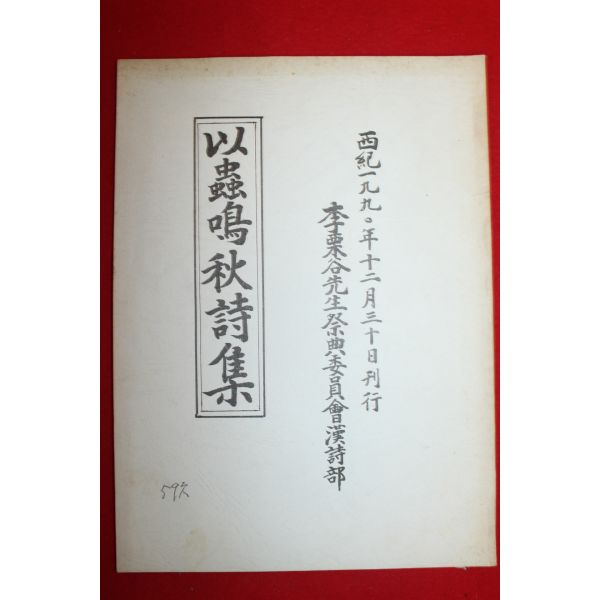 西紀一九九〇年十二月三十日刊行
李栗谷先生祭典委員會漢詩部
以蟲鳴秋詩集